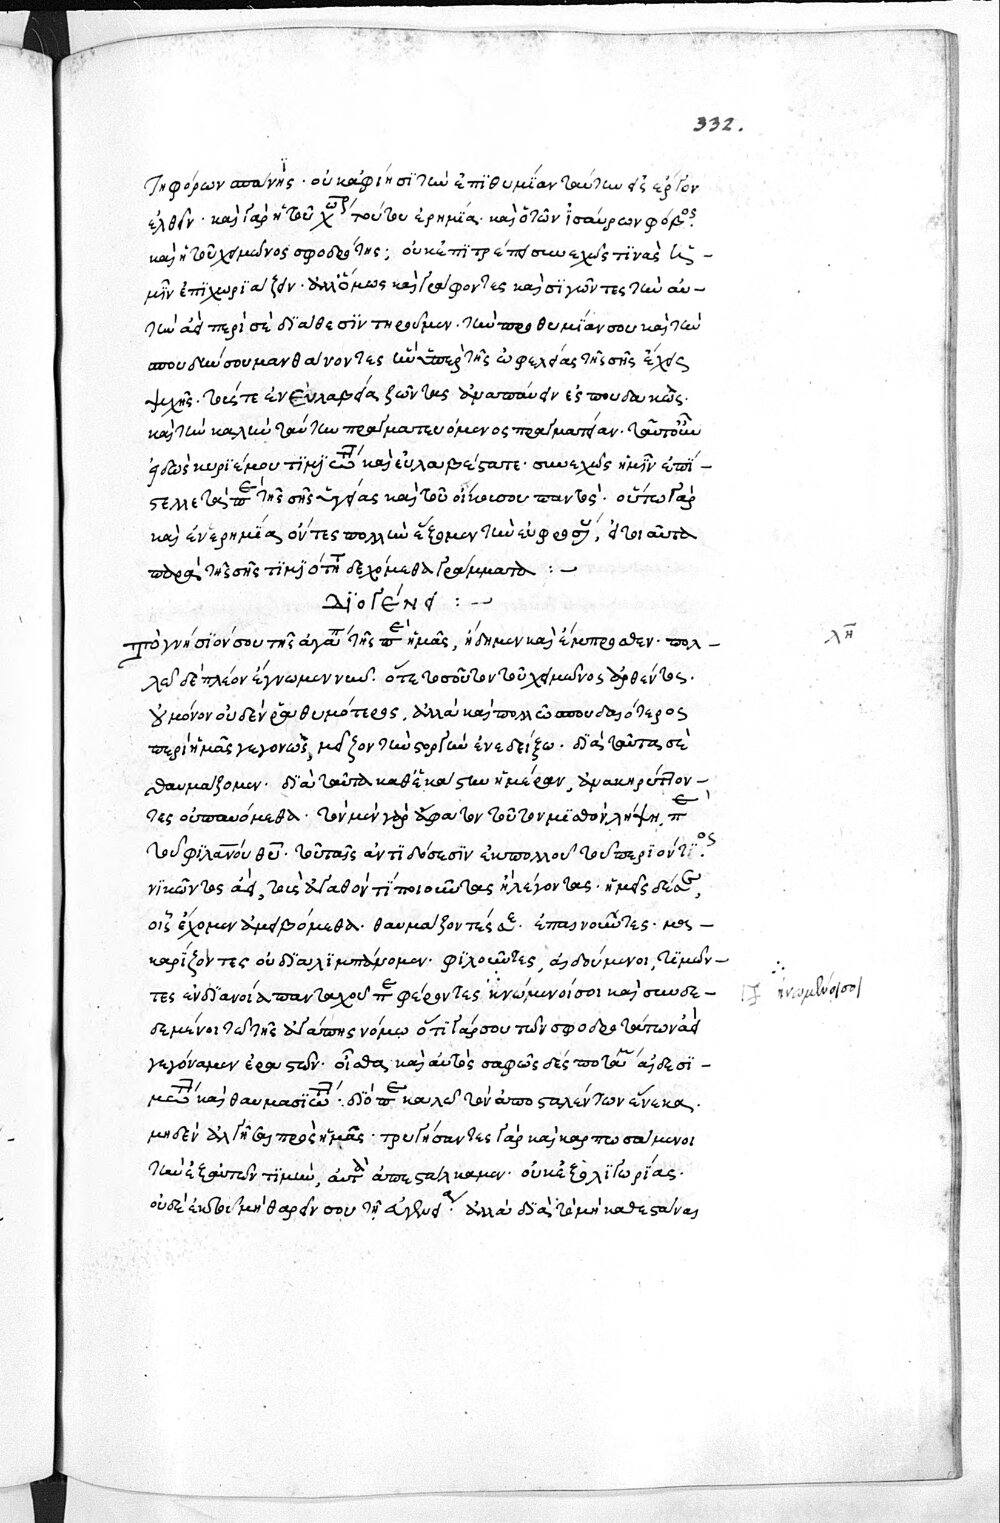 332.
τηφόρων ἁπάντης· οὐκ ἀφίησι τὴν ἐπιθυμίαν ταύτην εἰς ἔργον
ἐλθεῖν· καὶ γὰρ ἡ τοῦ χωρίου τούτου ἐρημία· καὶ ὁ τῶν ἰσαύρων φόβος·
καὶ ἡ τοῦ χειμῶνος σφοδρότης; οὐκ ἐπιτρέπει συνεχῶς τινὰς ἡ-
μῖν ἐπιχωριάζειν· ἀλλ' ὅμως καὶ γράφοντες καὶ σιγῶντες τὴν αὐ-
τὴν ἀεὶ περὶ σὲ διάθεσιν τηροῦμεν· τὴν προθυμίαν σου καὶ τὴν
σπουδήν σου μανθάνοντες ἣν ὑπὲρ τῆς ὠφελείας τῆς σῆς ἔχεις
ψυχῆς· τό, τε ἐν εὐλαβεία ζῶντας ἀναπαύειν ἐσπουδακὼς·
καὶ τὴν καλὴν ταύτην πραγματευόμενος πραγματείαν· ταῦτ' οὖν
εἰδὼς κύριέ μου τιμιώτατε καὶ εὐλαβέστατε· συνεχῶς ἡμῖν ἐπί-
στελλε τὰ περὶ τῆς σῆς ὑγείας καὶ τοῦ οἴκου σου παντὸς· οὕτω γὰρ
καὶ ἐν ἐρημία ὄντες πολλὴν ἕξομεν τὴν εὐφροσύνην, εἰ τοιαῦτα
παρὰ τῆς σῆς τιμιότητος δεχοίμεθα γράμματα :-
Διογένει :--
Τὸ γνήσιόν σου τῆς ἀγάπης τῆς περὶ ἡμᾶς, ἤδημεν καὶ ἔμπροσθεν· πολ-
λῶ δὲ πλέον ἔγνωμεν νῦν· ὅτε τοσούτου τοῦ χειμῶνος ἀρθέντος·
οὐ μόνον οὐδὲν ῥαθυμότερος, ἀλλὰ καὶ πολλῶ σπουδαιότερος
περὶ ἡμᾶς γεγονὼς, μείζον τὴν στοργὴν ἐνεδείξω· διὰ ταῦτα σὲ
θαυμάζομεν· διὰ ταῦτα καθ' ἑκάστην ἡμέραν, ἀνακηρύττον-
τες οὐ παυόμεθα· τὸν μὲν γὰρ ἄφατον τοῦτον μισθὸν λήψῃ, παρὰ
τοῦ φιλανθρώπου θεοῦ· τοῦ ταῖς ἀντιδόσεσιν ἐκ πολλοῦ τοῦ περιόντος·
νικῶντος ἀεὶ, τοὺς ἀγαθόν τι ποιοῦντας ἢ λέγοντας· ἡμεῖς δέ σε,
οἷς ἔχομεν ἀμειβόμεθα· θαυμάζοντές σε· ἐπαινοῦντες· μα-
καρίζοντες οὐ διαλιμπάνομεν· φιλοῦντες, αἰδούμενοι, τιμῶν-
τες ἐν διανοία πανταχοῦ περιφέροντες ἡνωμένοι σοι καὶ συνδε-
δεμένοι τῶ τῆς ἀγάπης νόμω ὅτι γάρ σου τῶν σφοδροτάτων ἀεὶ
γεγόναμεν ἐραστῶν· οἶσθα καὶ αὐτὸς σαφῶς δέσποτά μου αἰδεσι-
μώτατε καὶ θαυμασιώτατε· διὸ παρακαλῶ τῶν ἀποσταλέντων ἕνεκα·
μηδὲν ἀλγῆσαι πρὸς ἡμᾶς· τρυγήσαντες γὰρ καὶ καρπωσάμενοι
τὴν ἐξ αὐτῶν τιμὴν, αὐτὰ ἀπεστάλκαμεν· οὐκ ἐξ ὀλιγωρίας·
οὐδὲ ἐκ τοῦ μὴ θαρρεῖν σου τῆ εὐγενεία· ἀλλὰ διὰ τὸ μὴ καθεστάναι
λη
ἡνωμένοι σοι